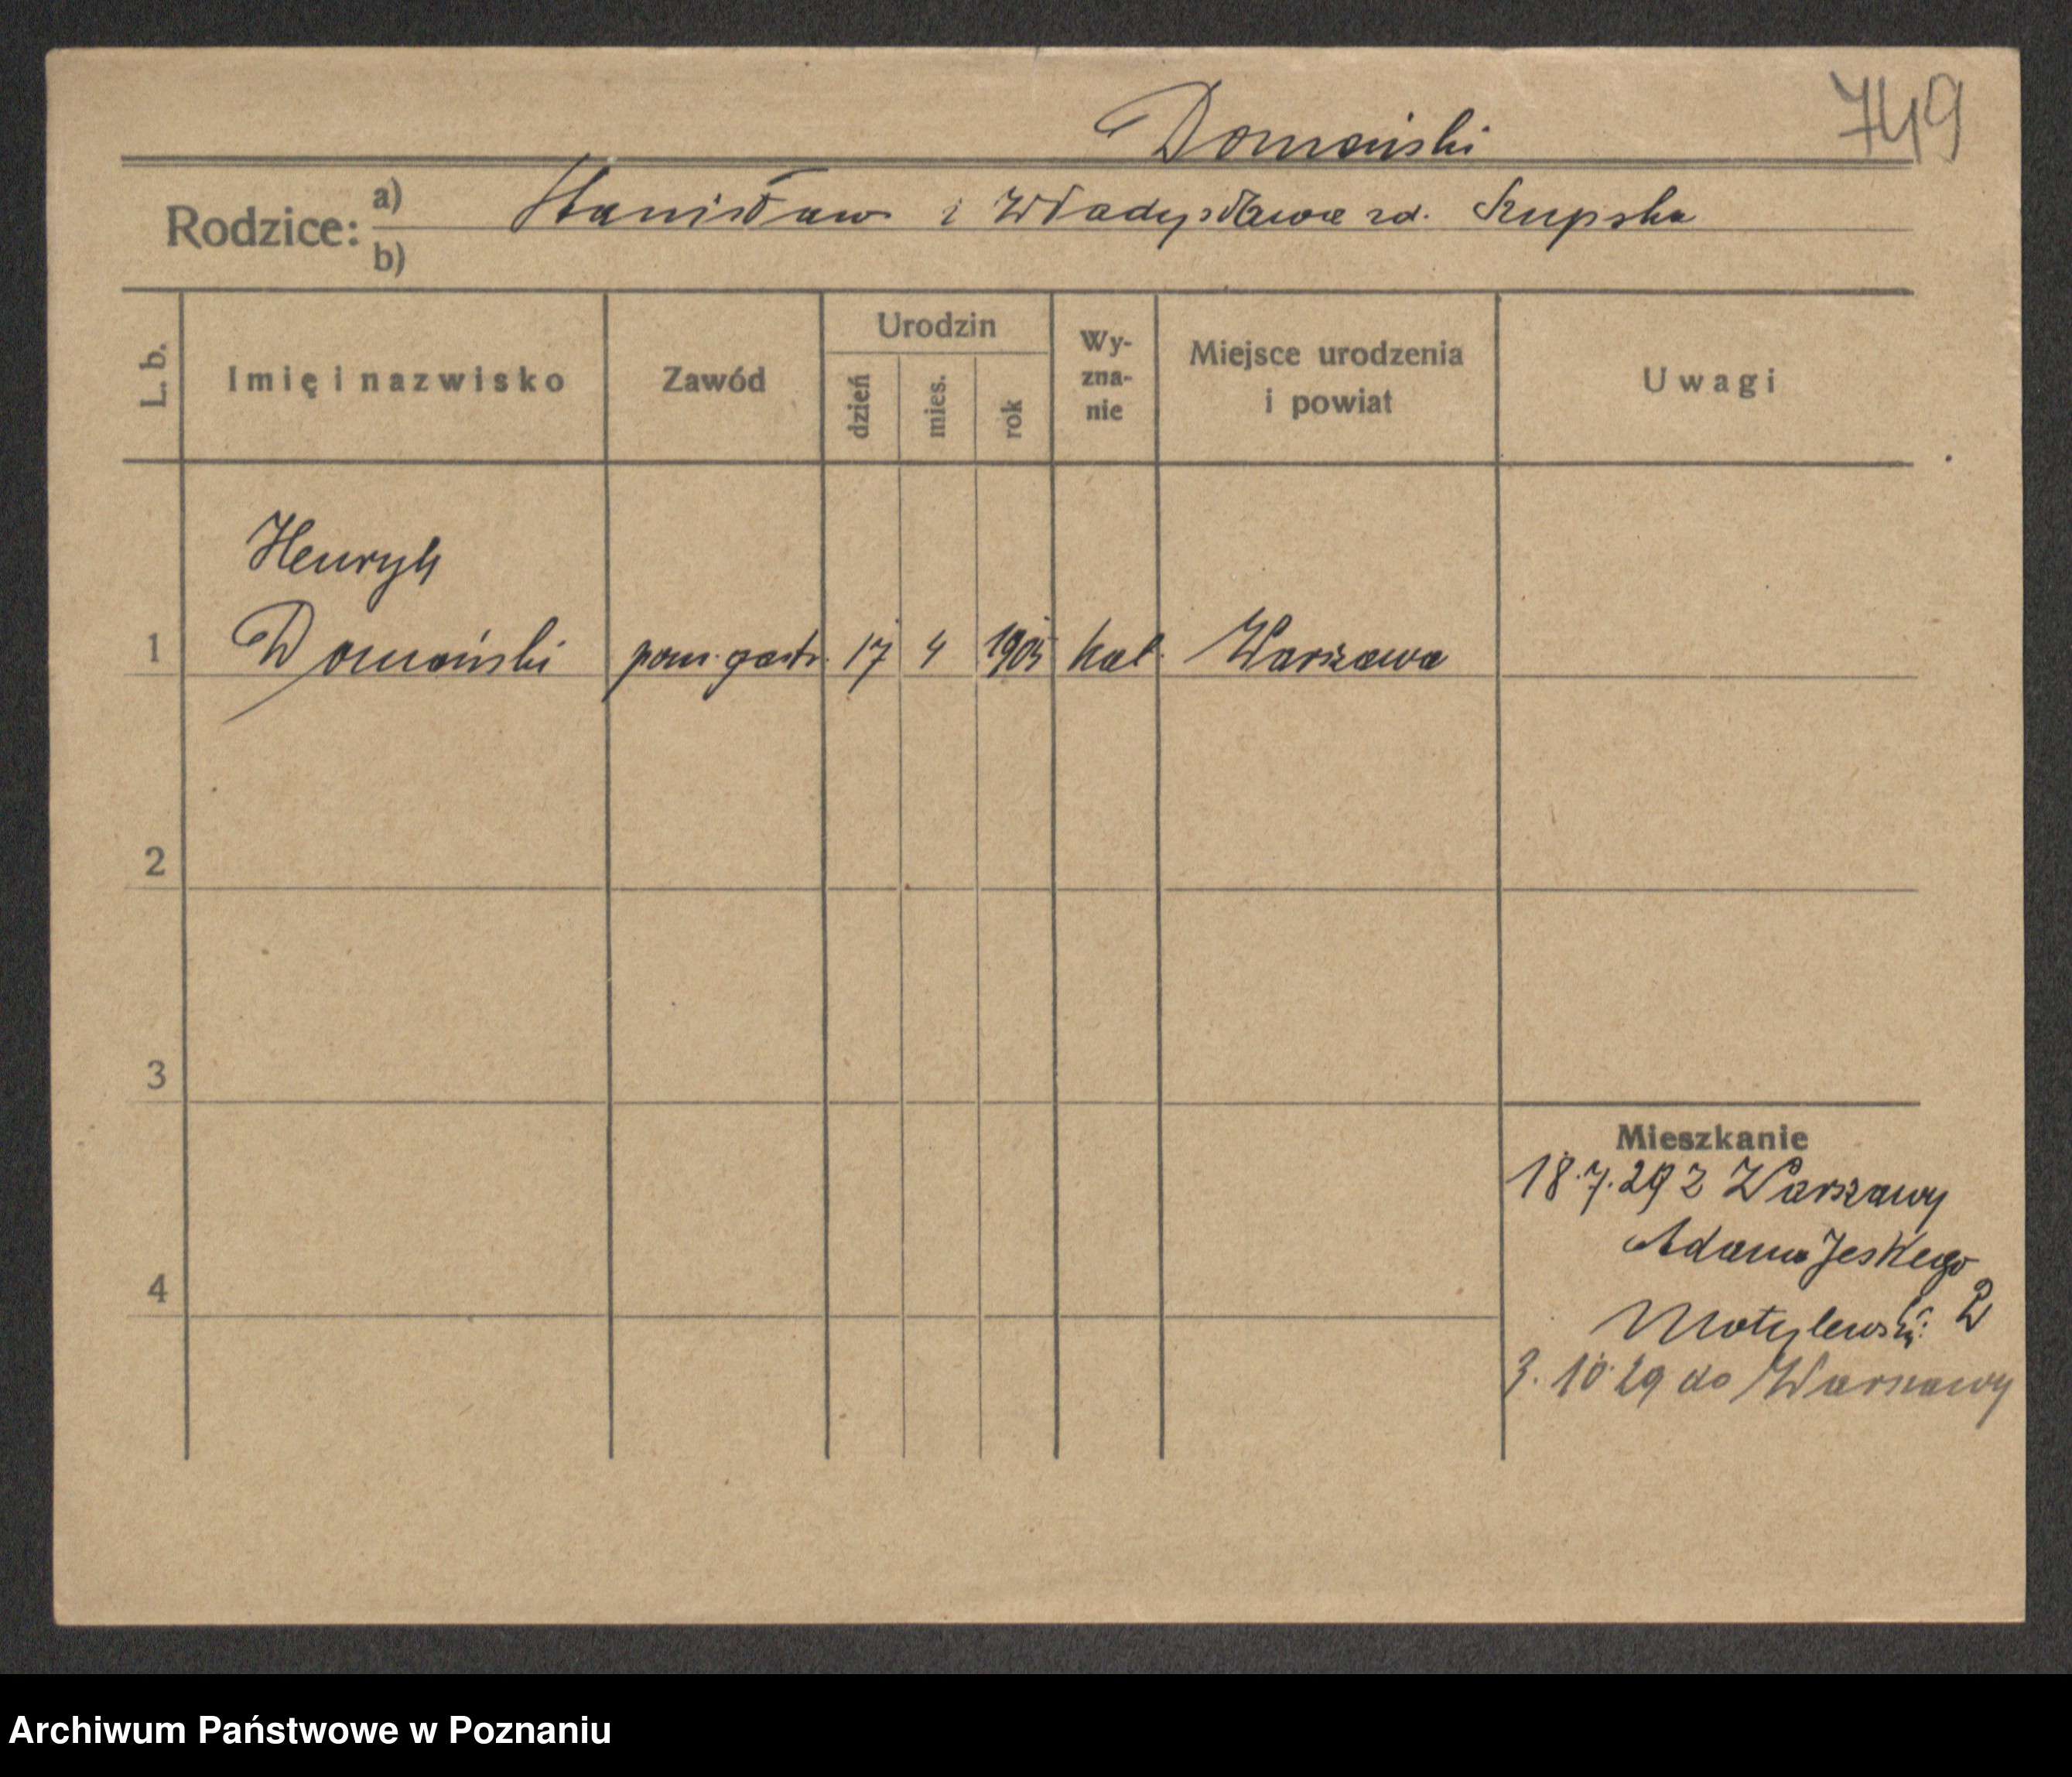 749
Domański
Rodzice: a) Stanisław i Władysława zd. Krupska
b)
L. b. Imię i nazwisko Zawód Urodzin dzień mies. rok Wy-zna-nie Miejsce urodzenia i powiat Uwagi
Henryk
1 Domański pom. gastr. 17 4 1905 kat. Warszawa
2
3
Mieszkanie
18.7.29 z Warszawy
Adama Jeskego
4
Motylewski 2
3.10.29 do Warszawy
Archiwum Państwowe w Poznaniu